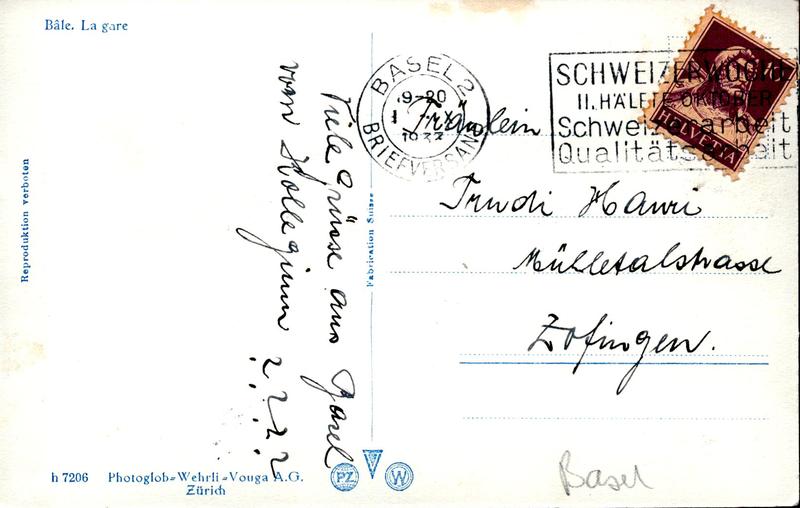 Bâle. La gare
Viele Grüsse aus Basel
vom Kollegium ? ? ? ?
Reproduktion verboten
Fabrication Suisse
BASEL 2
9-20
BRIEFVERSAND
SCHWEIZERWOCHE
II. HÄLFTE OKTOBER
Schweizerarbeit
Qualitätsarbeit
HELVETIA
Fräulein
Trudi Hauri
Mühletalstrasse
Zofingen.
Basel
h 7206 Photoglob-Wehrli-Vouga A.G.
Zürich
PZ
V
W